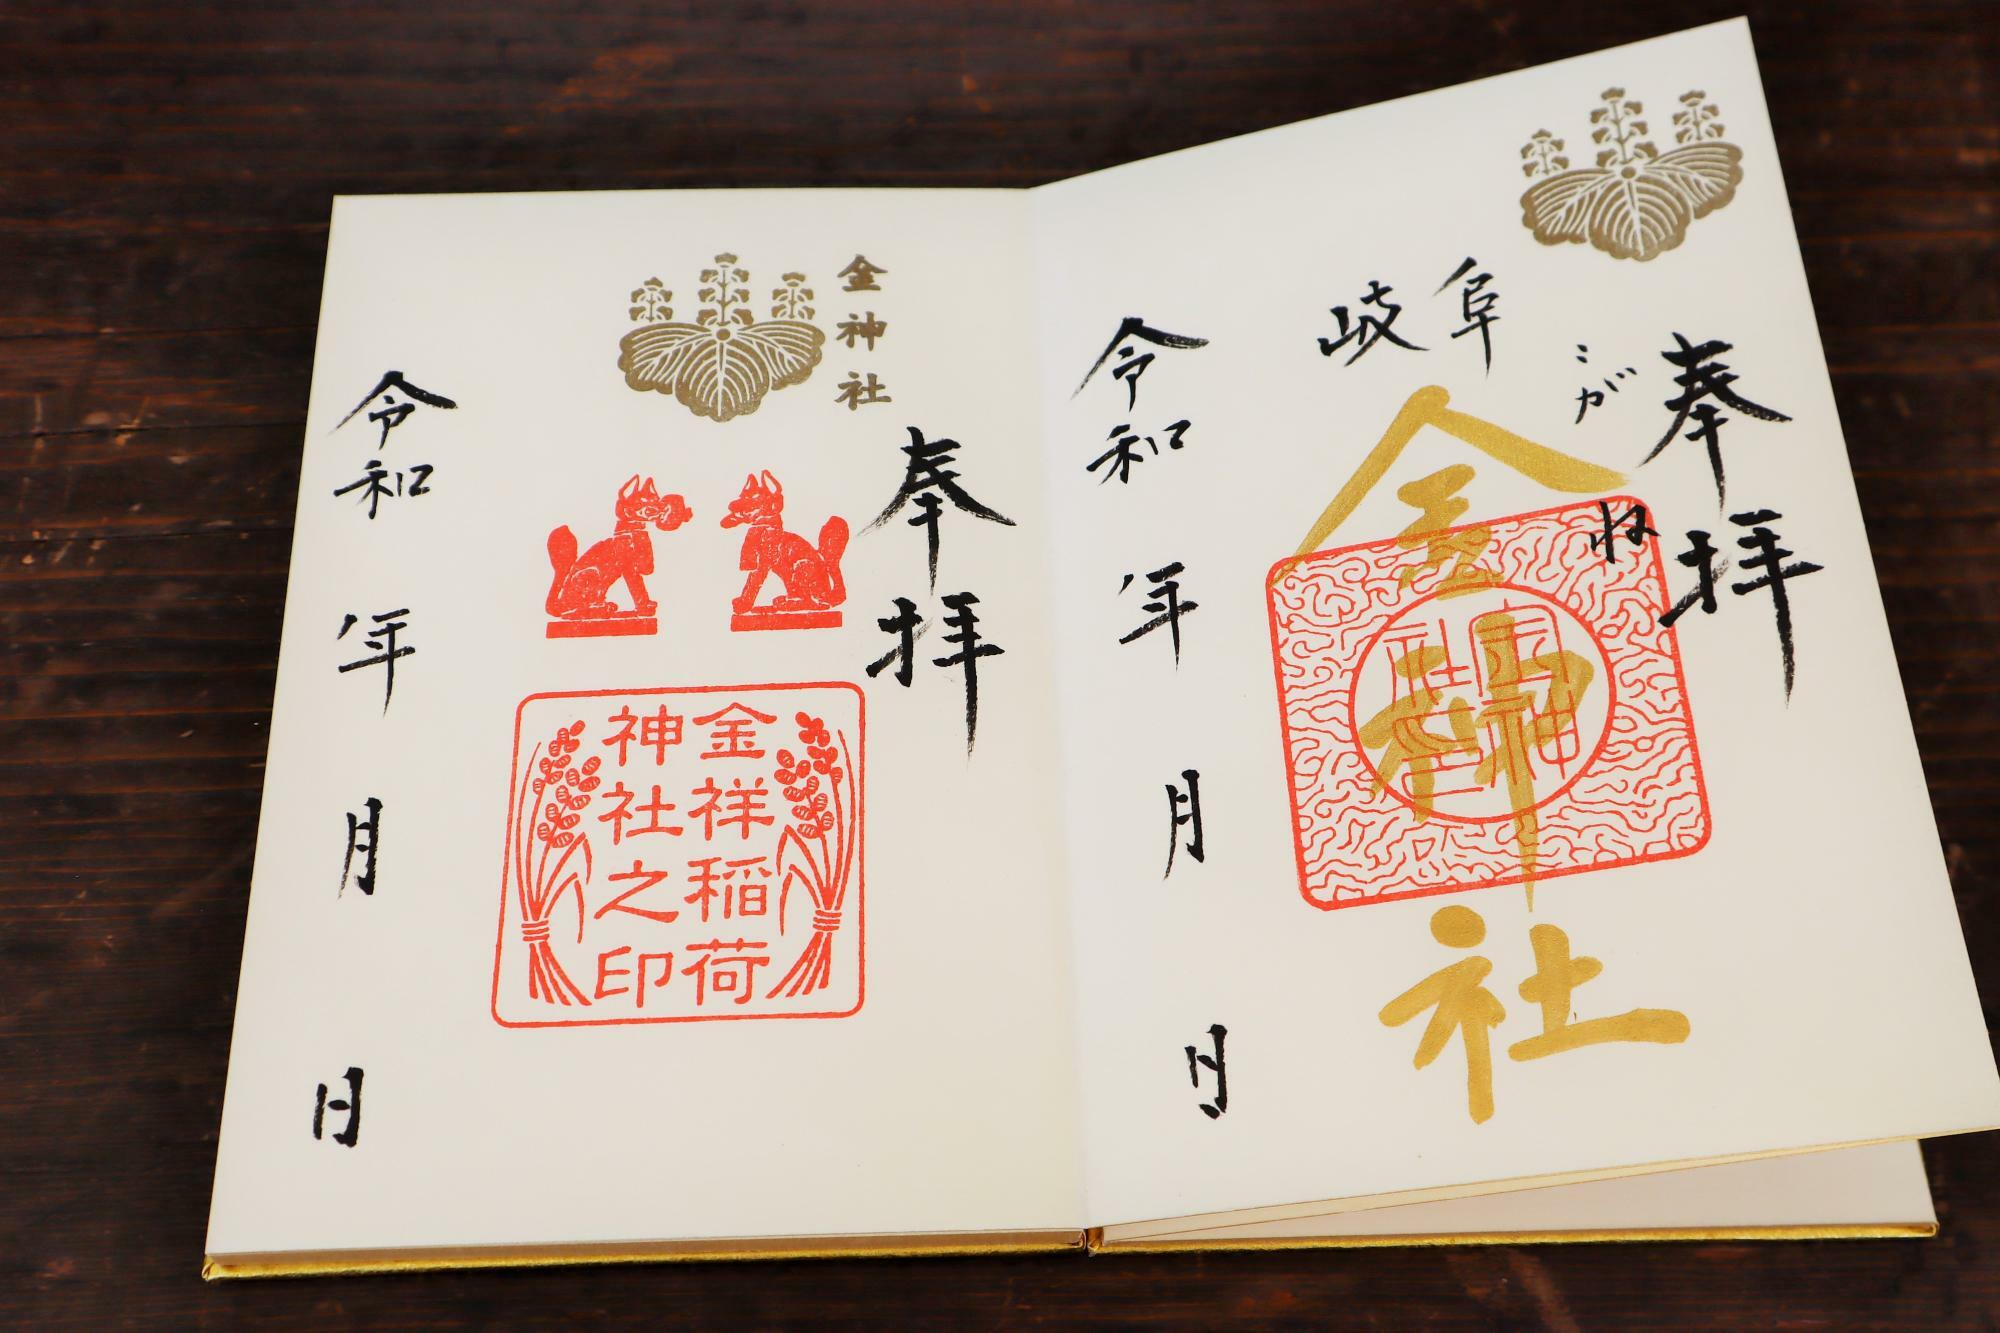 奉拝
こがね
岐阜
金神社
金神社
令和 年 月 日
金神社
奉拝
金祥稲荷
神社之印
令和 年 月 日